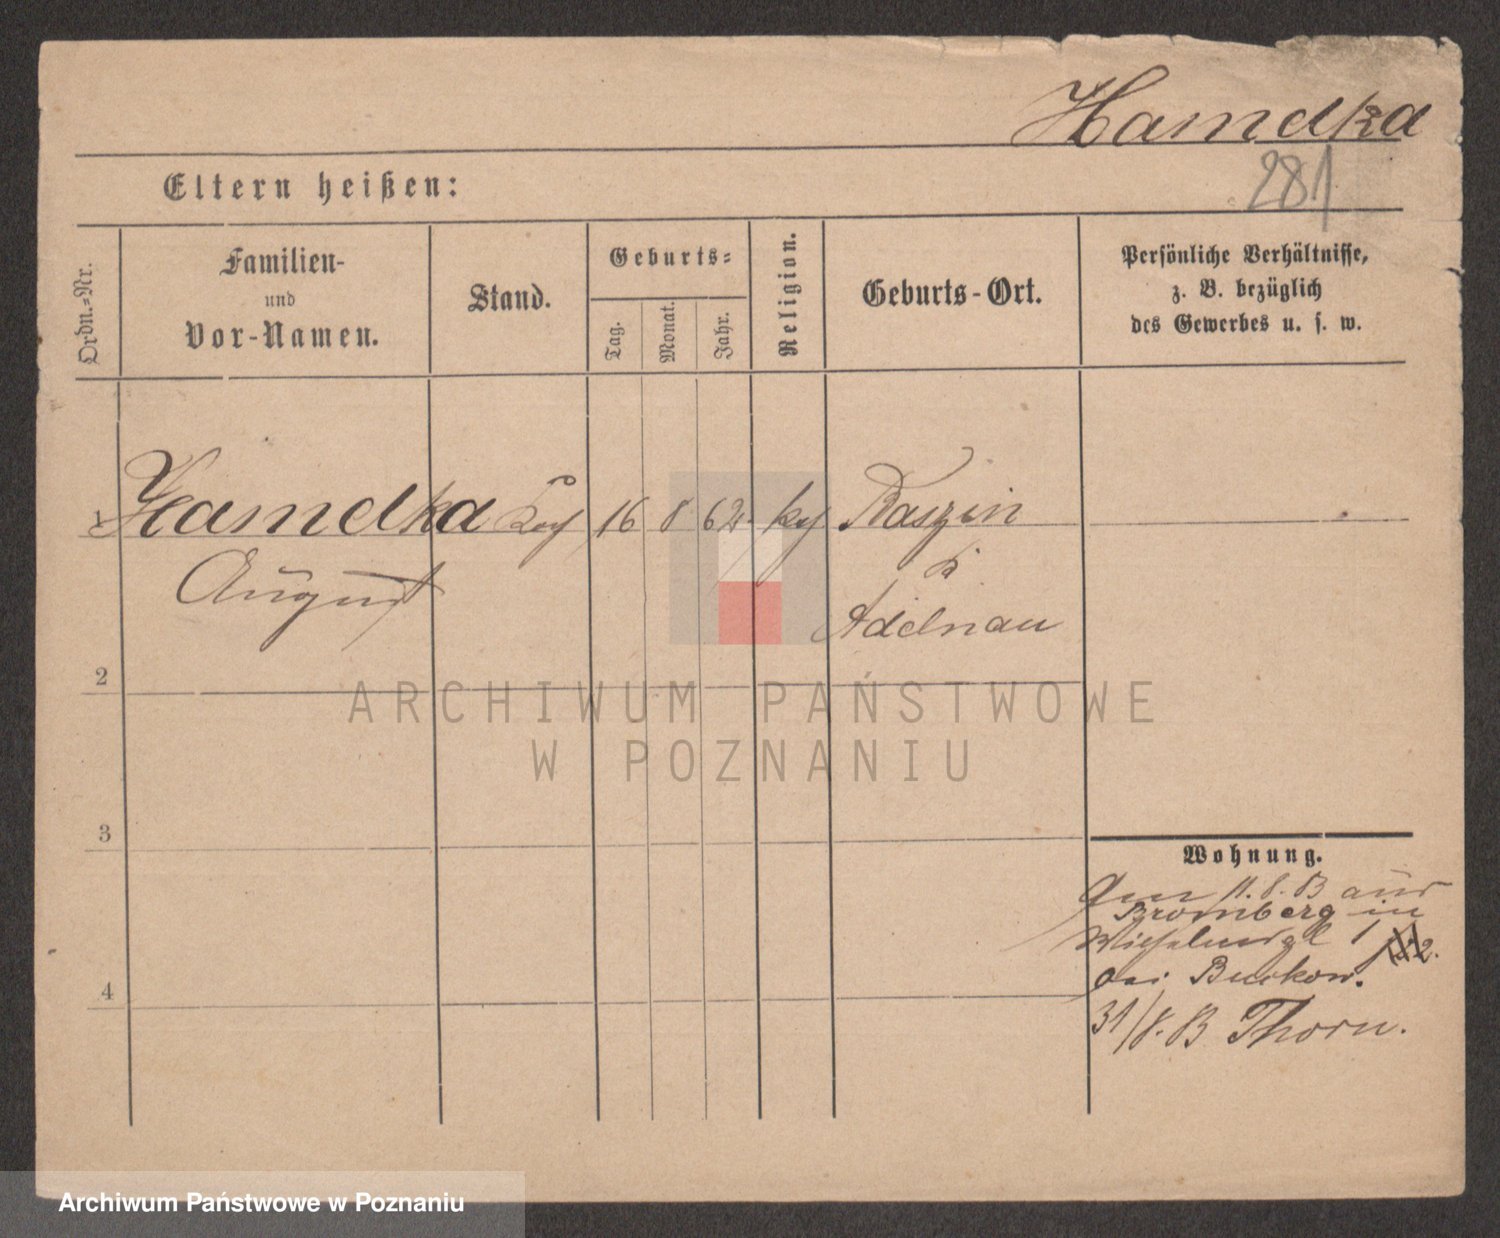 Hamdka
281
Eltern heißen:
Ordn.=Nr.
Familien-
und
Vor-Namen.
Stand.
Geburts=
Tag.
Monat.
Jahr.
Religion.
Geburts-Ort.
Persönliche Verhältnisse,
z. B. bezüglich
des Gewerbes u. s. w.
1 Hamdka 16 8 62 Raszin
August
Adelnau
2
3
4
Wohnung.
11. 8. 13 aus
Bromberg in
bei
31/8. 13 Thorn.
ARCHIWUM PAŃSTWOWE
W POZNANIU
Archiwum Państwowe w Poznaniu